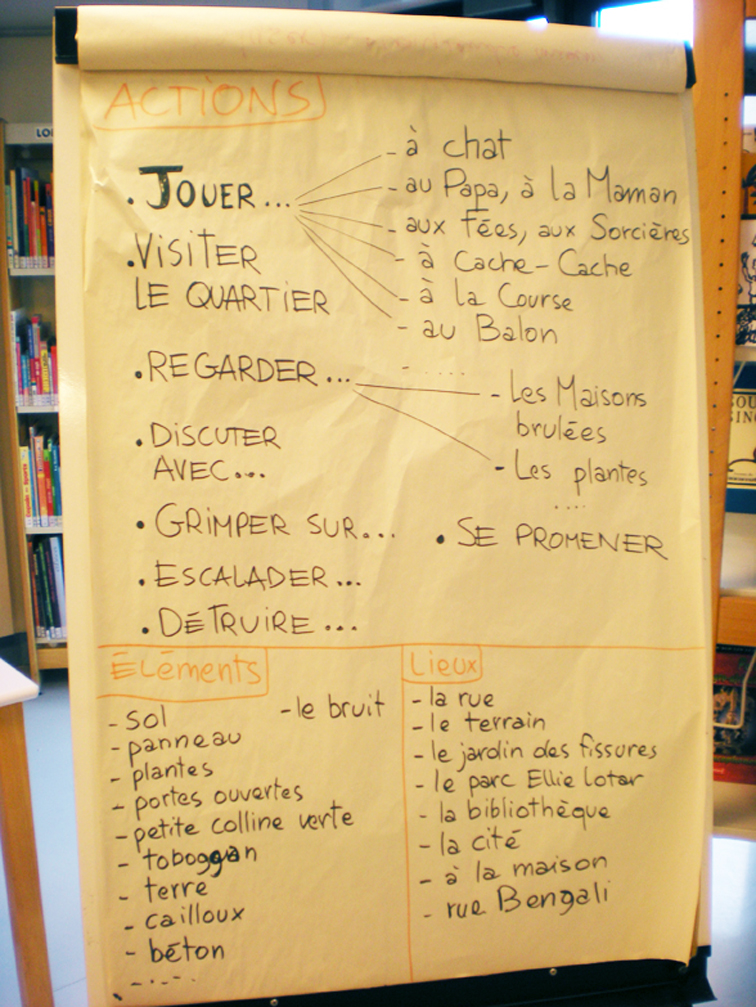 ACTIONS
. JOUER...
- à chat
- au Papa, à la Maman
- aux Fées, aux Sorcières
- à Cache-Cache
- à la Course
- au Balon
- .....
.VISITER
LE QUARTIER
.REGARDER...
- Les Maisons
brulées
- Les plantes
....
. DISCUTER
AVEC...
. GRIMPER SUR...
. SE PROMENER
. ESCALADER...
. DÉTRUIRE...
ÉLéments
- sol
- le bruit
- panneau
- plantes
- portes ouvertes
- petite colline verte
- toboggan
- terre
- cailloux
- béton
- ....
Lieux
- la rue
- le terrain
- le jardin des fissures
- le parc Ellie Lotar
- la bibliothèque
- la cité
- à la maison
- rue Bengali